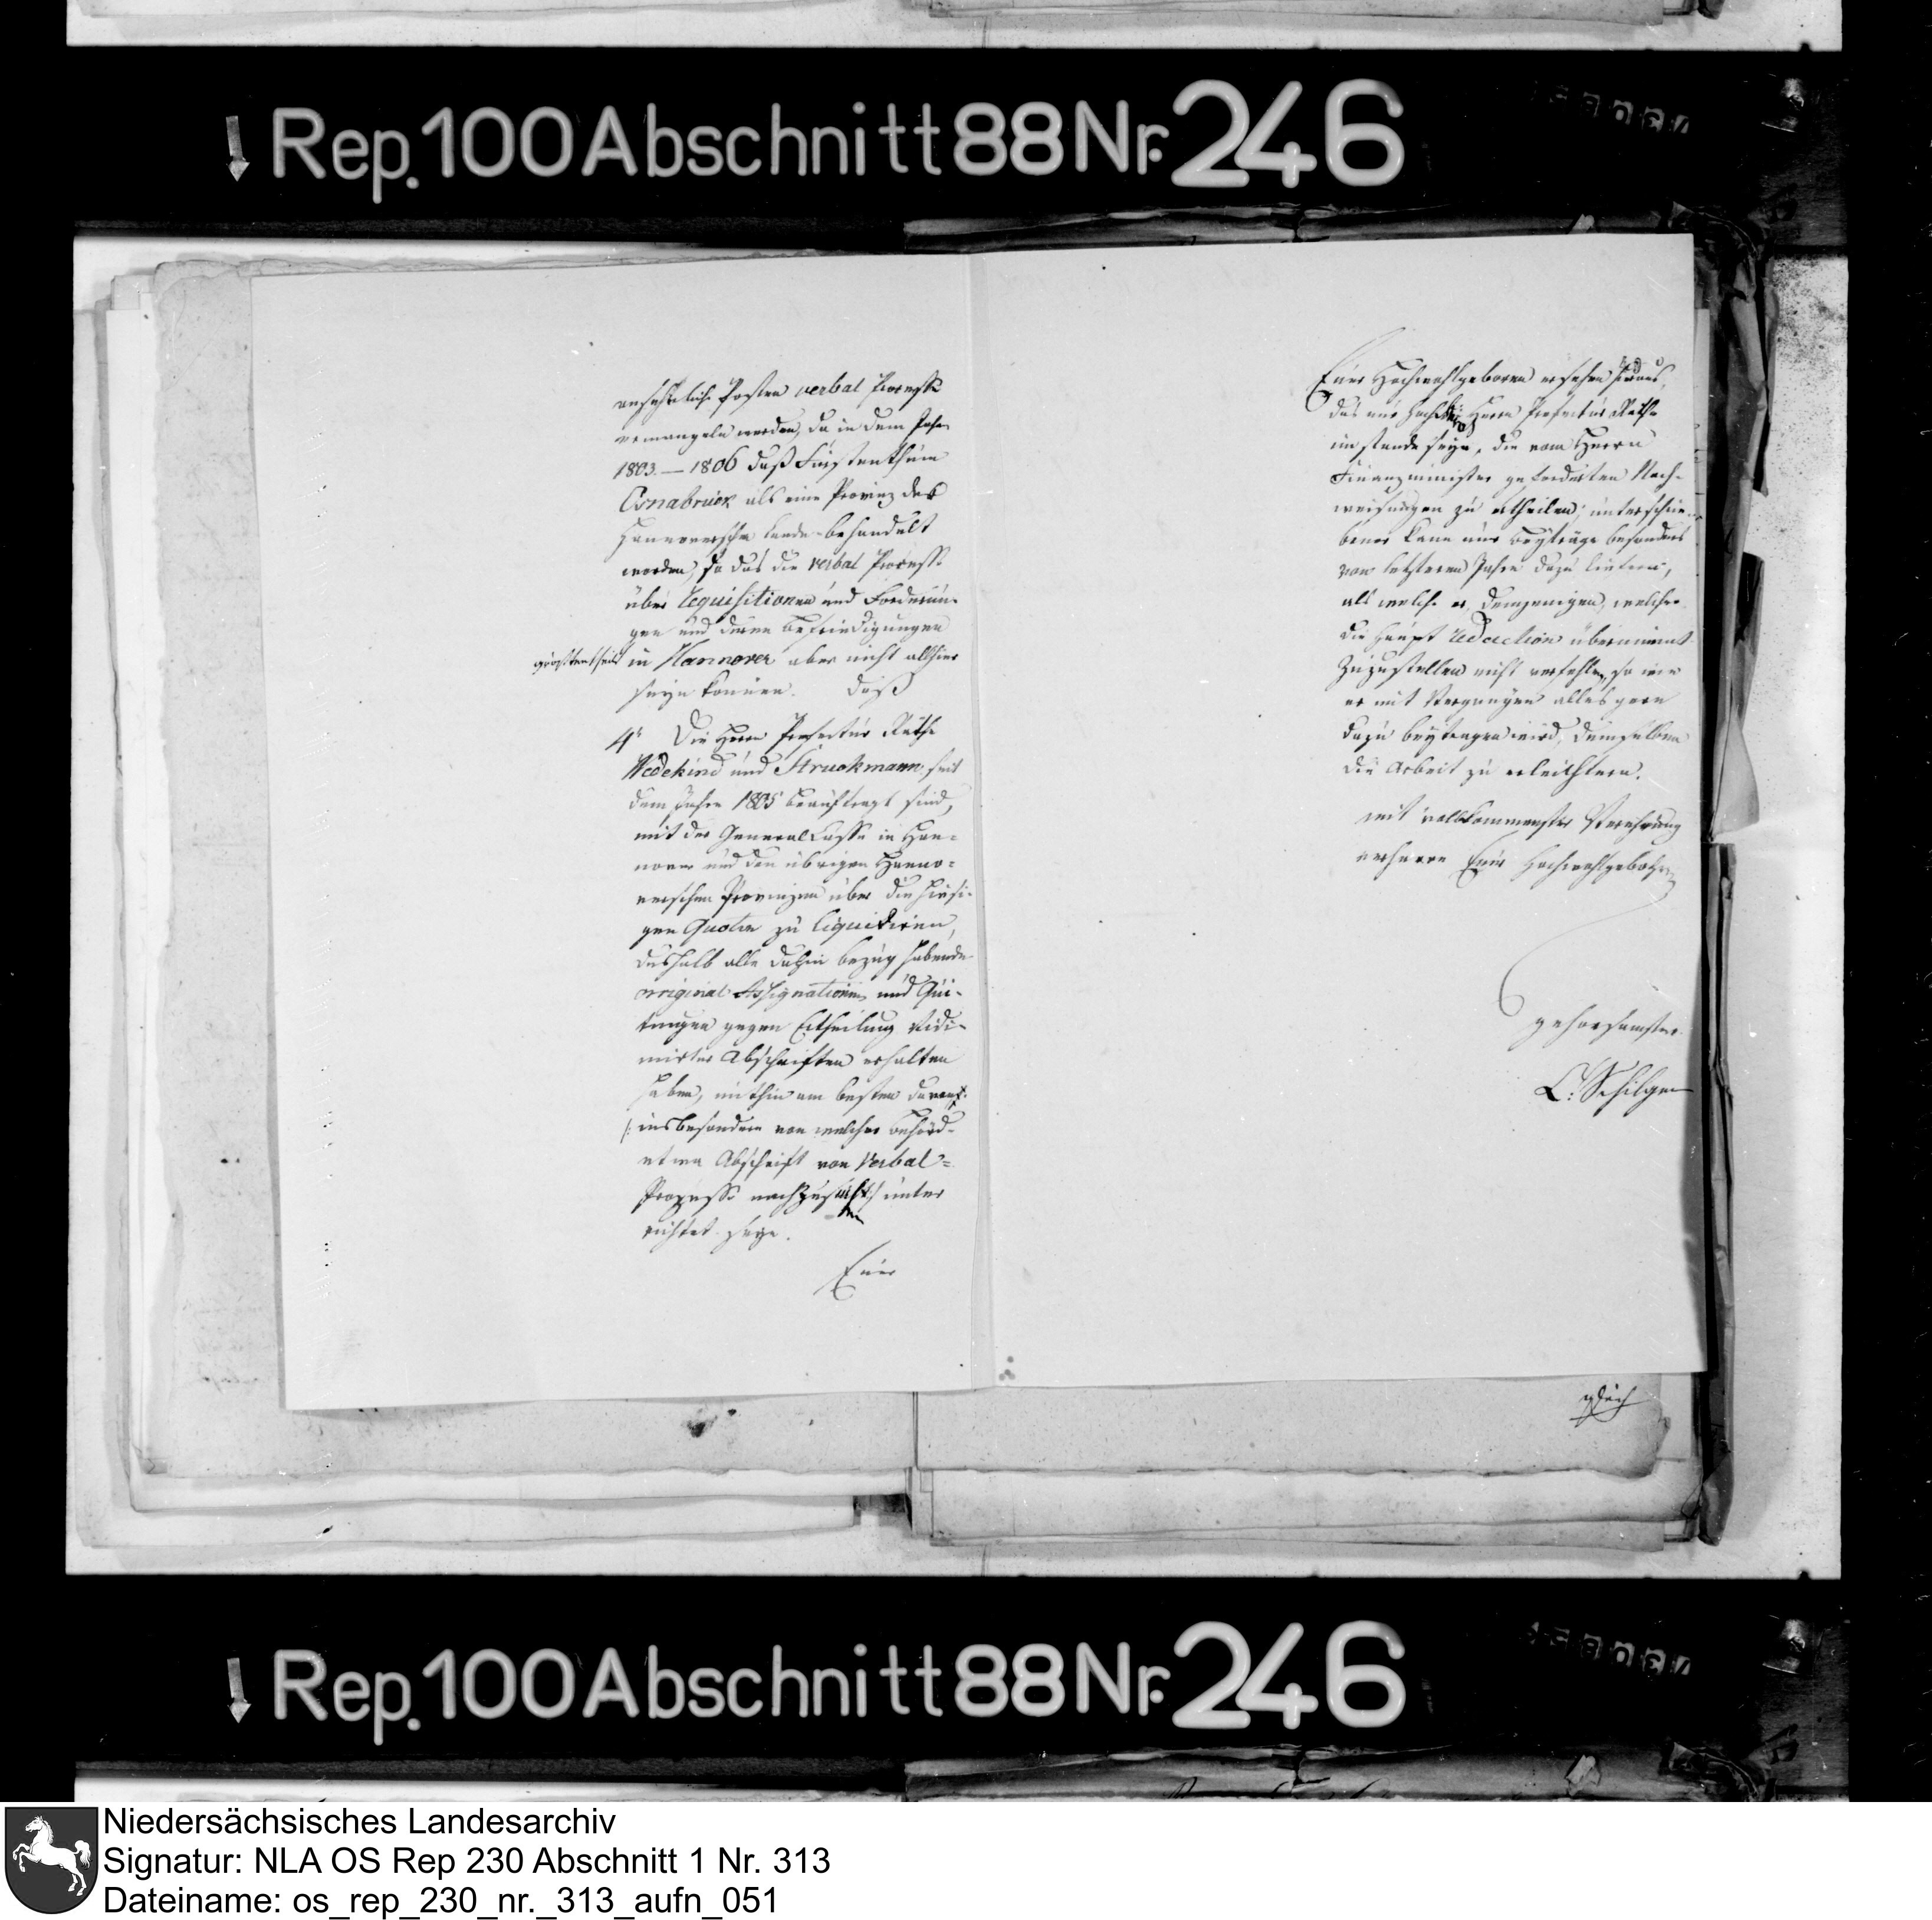 Rep. 100 Abschnitt 88 Nr. 246
ansehnliche Posten verbal Processe
ermangeln werden, da in dem Jahre
1803. — 1806 daß Fürstenthum
Osnabrück als eine Provinz der
Hannoverschen Lande behandelt
worden, so das die verbal Processe
über Requisitionen und Forderun-
gen und deren Befriedigungen
größtentheils in Hannover aber nicht allhier
seyn können. daß
4° Die Herrn Prefectur Räthe
Wedekind und Struckmann seit
dem Jahre 1805 beauftragt sind,
mit der General Casse in Han-
nover und den übrigen Hanno-
verschen Provinzen über die hiesi-
gen Quoten zu liquidiren,
deshalb alle dahin bezug habende
original Assignationen und Qui-
tungen gegen Ertheilung vidi-
mirter Abschriften erhalten
haben, mithin am besten
/: insbesondere von welcher Behörd-
etwa Abschrift von Verbal-
Prozesse nachzusuchen :/ unter
richtet seyn.
Euer
Euer Hochwohlgeboren ersehen hieraus,
das nur Herrn Prefectur Räthe
im stande seyn, die vom Herrn
Finanzminister geforderten Nach-
weisungen zu ertheilen; unterschrie-
bener kann nur Beyträge besonders
von letzteren Jahre dazu liefern,
als welche er demjenigen, welcher
die Haupt Redaction übernimmt
zuzustellen nicht verfehlen, so wie
er mit Vergnügen alles gern
dazu beytragen wird, demselben
die Arbeit zu erleichtern.
mit vollkommenster Verehrung
Euer Hochwohlgebohren
gehorsamster
C: Schilgen
Rep. 100 Abschnitt 88 Nr. 246
Niedersächsisches Landesarchiv
Signatur: NLA OS Rep 230 Abschnitt 1 Nr. 313
Dateiname: os_rep_230_nr._313_aufn_051